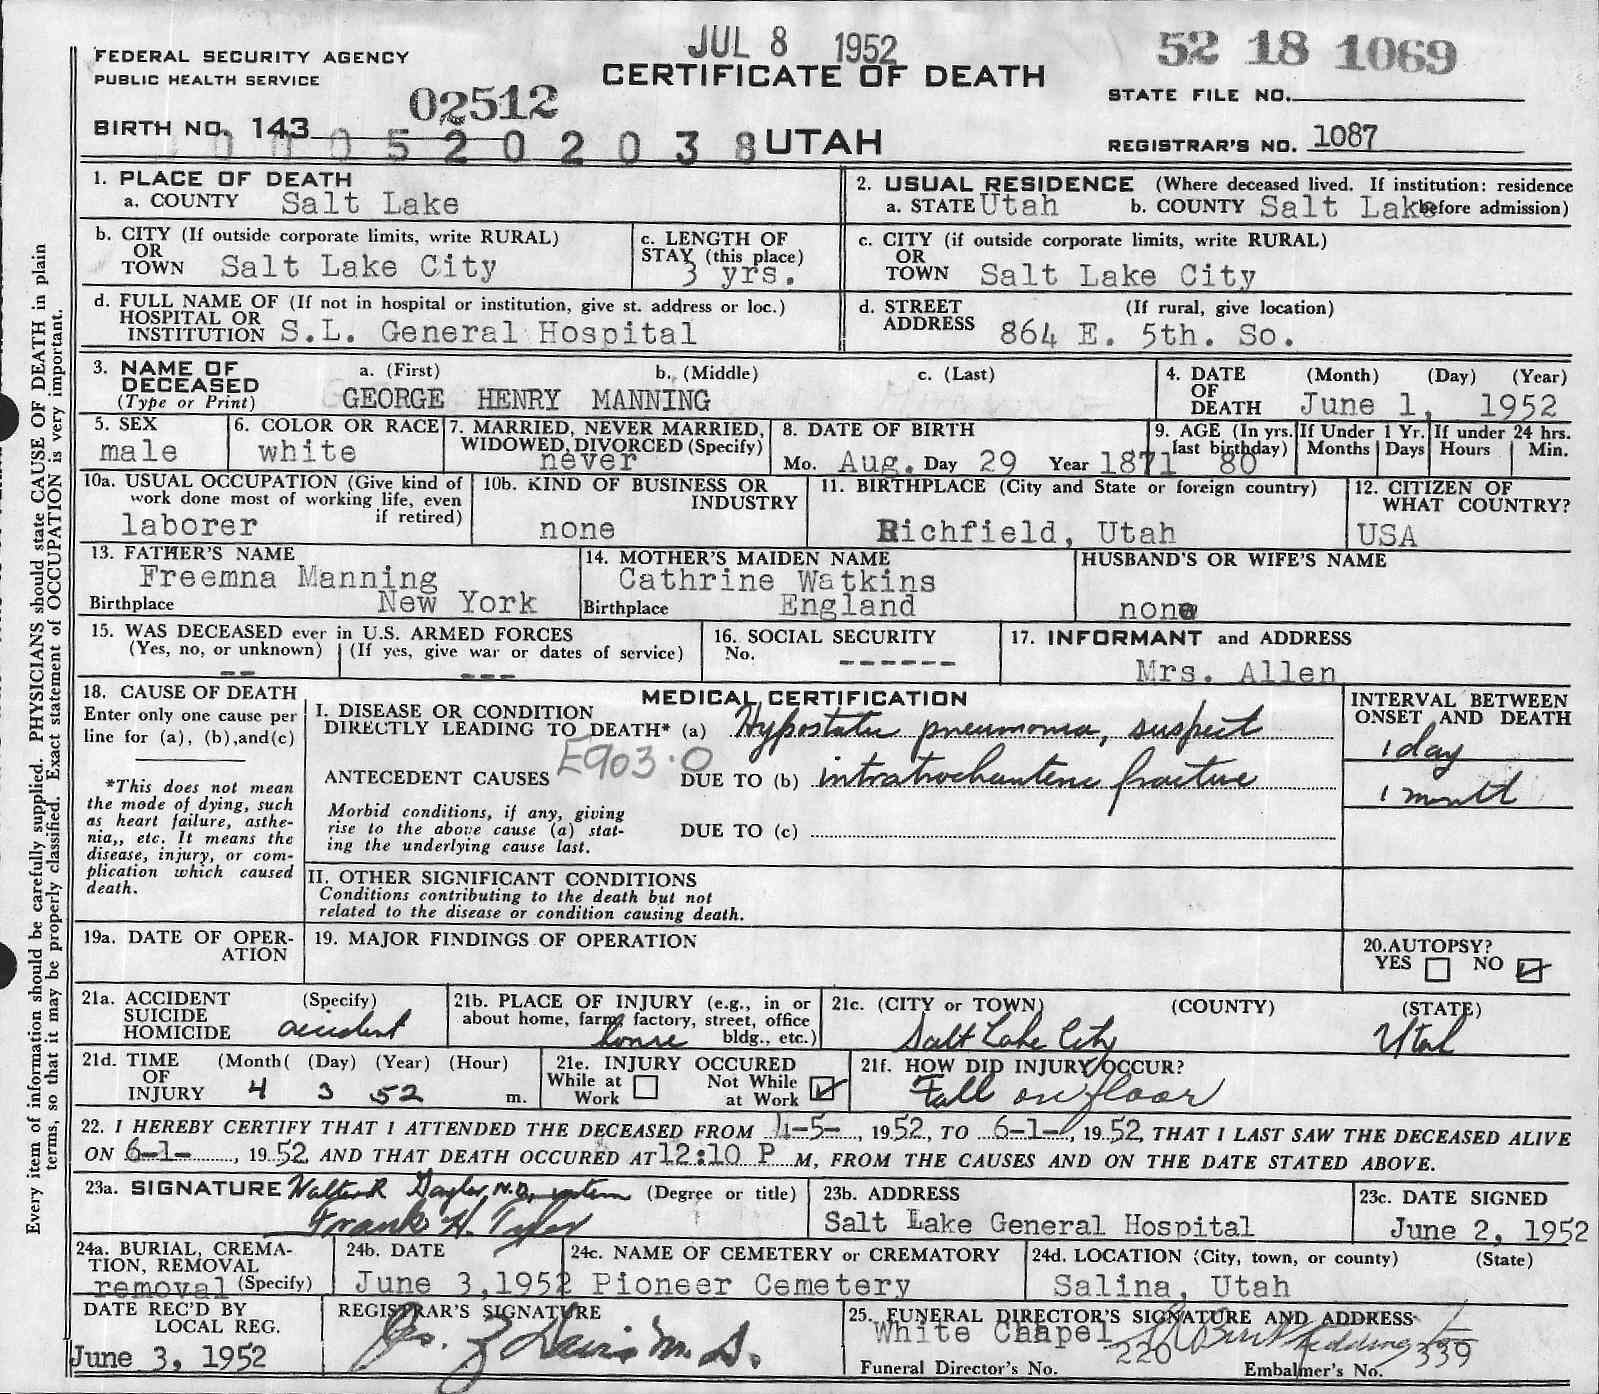 JUL 8 1952
52 18 1069
FEDERAL SECURITY AGENCY
PUBLIC HEALTH SERVICE
CERTIFICATE OF DEATH
STATE FILE NO.
02512
BIRTH NO. 143
0 0 0 5 2 0 2 0 3 8
UTAH
REGISTRAR'S NO. 1087
1. PLACE OF DEATH
a. COUNTY Salt Lake
2. USUAL RESIDENCE (Where deceased lived. If institution: residence
a. STATE Utah b. COUNTY Salt Lake before admission)
b. CITY (If outside corporate limits, write RURAL)
OR
TOWN Salt Lake City
c. LENGTH OF
STAY (this place)
3 yrs.
c. CITY (if outside corporate limits, write RURAL)
OR
TOWN Salt Lake City
d. FULL NAME OF (If not in hospital or institution, give st. address or loc.)
HOSPITAL OR
INSTITUTION S.L. General Hospital
d. STREET (If rural, give location)
ADDRESS 864 E. 5th. So.
3. NAME OF a. (First) b. (Middle) c. (Last)
DECEASED
(Type or Print) GEORGE HENRY MANNING
4. DATE (Month) (Day) (Year)
OF
DEATH June 1, 1952
5. SEX
male
6. COLOR OR RACE
white
7. MARRIED, NEVER MARRIED,
WIDOWED, DIVORCED (Specify)
never
8. DATE OF BIRTH
Mo. Aug. Day 29 Year 1871
9. AGE (In yrs.
last birthday)
80
If Under 1 Yr.
Months Days
If under 24 hrs.
Hours Min.
10a. USUAL OCCUPATION (Give kind of
work done most of working life, even
if retired)
laborer
10b. KIND OF BUSINESS OR
INDUSTRY
none
11. BIRTHPLACE (City and State or foreign country)
Richfield, Utah
12. CITIZEN OF
WHAT COUNTRY?
USA
13. FATHER'S NAME
Freemna Manning
Birthplace New York
14. MOTHER'S MAIDEN NAME
Cathrine Watkins
Birthplace England
HUSBAND'S OR WIFE'S NAME
none
15. WAS DECEASED ever in U.S. ARMED FORCES
(Yes, no, or unknown) (If yes, give war or dates of service)
-- ---
16. SOCIAL SECURITY
No. ------
17. INFORMANT and ADDRESS
Mrs. Allen
18. CAUSE OF DEATH
Enter only one cause per
line for (a), (b), and (c)
*This does not mean
the mode of dying, such
as heart failure, asthe-
nia,, etc. It means the
disease, injury, or com-
plication which caused
death.
MEDICAL CERTIFICATION
I. DISEASE OR CONDITION
DIRECTLY LEADING TO DEATH* (a) Hypostatic pneumonia, suspect
E903.0
ANTECEDENT CAUSES DUE TO (b) intratrochanteric fracture
Morbid conditions, if any, giving
rise to the above cause (a) stat-
ing the underlying cause last.
DUE TO (c)
INTERVAL BETWEEN
ONSET AND DEATH
1 day
1 month
II. OTHER SIGNIFICANT CONDITIONS
Conditions contributing to the death but not
related to the disease or condition causing death.
19a. DATE OF OPER-
ATION
19. MAJOR FINDINGS OF OPERATION
20. AUTOPSY?
YES NO
21a. ACCIDENT (Specify)
SUICIDE
HOMICIDE accident
21b. PLACE OF INJURY (e.g., in or
about home, farm, factory, street, office
bldg., etc.)
home
21c. (CITY or TOWN) (COUNTY) (STATE)
Salt Lake City Utah
21d. TIME (Month( (Day) (Year) (Hour)
OF
INJURY 4 3 52 m.
21e. INJURY OCCURED
While at Work Not While at Work
21f. HOW DID INJURY OCCUR?
Fall on floor
22. I HEREBY CERTIFY THAT I ATTENDED THE DECEASED FROM 4-5-, 1952, TO 6-1-, 1952, THAT I LAST SAW THE DECEASED ALIVE
ON 6-1-, 1952, AND THAT DEATH OCCURED AT 12:10 P M, FROM THE CAUSES AND ON THE DATE STATED ABOVE.
23a. SIGNATURE Walter R M.D. intern (Degree or title)
Frank H. Tyler
23b. ADDRESS
Salt Lake General Hospital
23c. DATE SIGNED
June 2, 1952
24a. BURIAL, CREMA-
TION, REMOVAL
removal (Specify)
24b. DATE
June 3, 1952
24c. NAME OF CEMETERY or CREMATORY
Pioneer Cemetery
24d. LOCATION (City, town, or county) (State)
Salina, Utah
DATE REC'D BY
LOCAL REG.
June 3, 1952
REGISTRAR'S SIGNATURE
Davis M.D.
25. FUNERAL DIRECTOR'S SIGNATURE AND ADDRESS
White Chapel
220 339
Funeral Director's No. Embalmer's No.
Every item of information should be carefully supplied. PHYSICIANS should state CAUSE OF DEATH in plain
terms, so that it may be properly classified. Exact statement of OCCUPATION is very important.